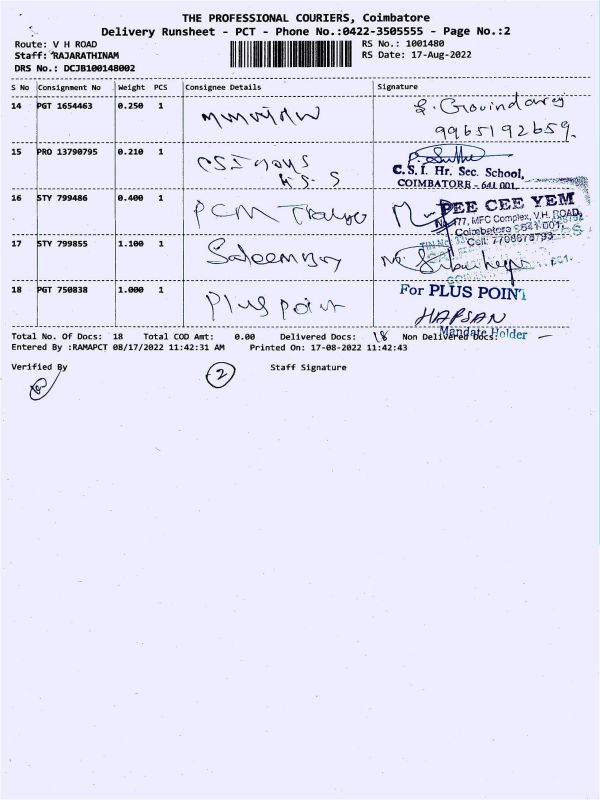 THE PROFESSIONAL COURIERS, Coimbatore
Delivery Runsheet - PCT - Phone No.:0422-3505555 - Page No.:2
Route: V H ROAD RS No.: 1001480
Staff: RAJARATHINAM RS Date: 17-Aug-2022
DRS No.: DCJB100148002
S No Consignment No Weight PCS Consignee Details Signature
14 PGT 1654463 0.250 1
9965192659.
15 PRO 13790795 0.210 1 CSI Boys
H.S.S
C.S.I. Hr. Sec. School,
COIMBATORE - 641 001.
16 STY 799486 0.400 1 PCM
PEE CEE YEM
No. 177, MFC Complex, V.H. ROAD,
Coimbatore - 641 001.
Cell: 7708678793
17 STY 799855 1.100 1
18 PGT 750838 1.000 1 Plus Point
For PLUS POINT
Mandate Holder
Total No. Of Docs: 18 Total COD Amt: 0.00 Delivered Docs: 18 Non Delivered Docs: —
Entered By :RAMAPCT 08/17/2022 11:42:31 AM Printed On: 17-08-2022 11:42:43
Verified By 2 Staff Signature